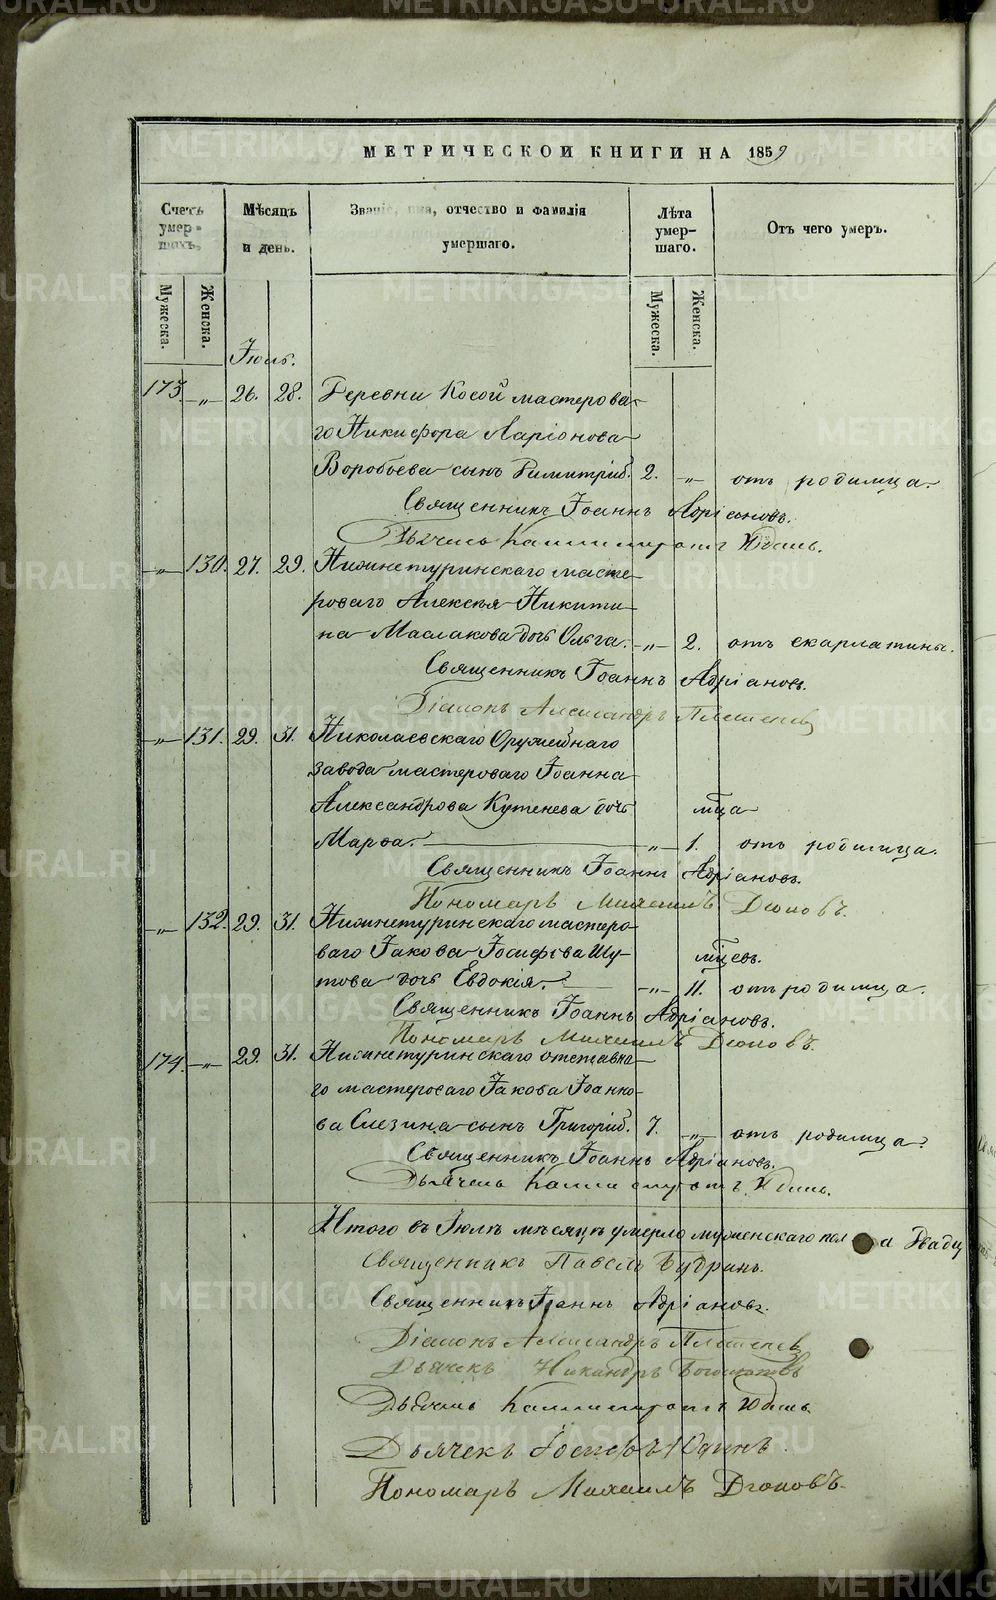 МЕТРИЧЕСКОЙ КНИГИ НА 1859
Счетъ умер-шихъ.
Мѣсяцъ и день.
Званіе, имя, отчество и фамилія умершаго.
Лѣта умер-шаго.
Отъ чего умеръ.
Мужеска. Женска.
Мужеска. Женска.
Іюль.
173. -„- 26. 28. Деревни Косой мастерова-
го Никифора Ларіонова
Воробьева сынъ Димитрій. 2. -„- отъ родимца.
Священникъ Іоаннъ Адріановъ.
Дьячекъ Капитонъ Юдинъ.
-„- 130. 27. 29. Нижнетуринскаго масте-
роваго Алексѣя Никити-
на Маслакова дочь Ольга. -„- 2. отъ скарлатины.
Священникъ Іоаннъ Адріановъ.
Діаконъ Александръ
-„- 131. 29. 31. Николаевскаго Оружейнаго
завода мастероваго Іоанна
Александрова Кутенева дочь мѣца
Марѳа. -„- 1. отъ родимца.
Священникъ Іоаннъ Адріановъ.
Пономарь Михаилъ Дюповъ.
-„- 132. 29. 31. Нижнетуринскаго мастеро-
ваго Іакова Іосифова Шу- мѣцевъ.
това дочь Евдокія. -„- 11. отъ родимца.
Священникъ Іоаннъ Адріановъ.
Пономарь Михаилъ Дюповъ.
174. -„- 29. 31. Нижнетуринскаго отставна-
го мастероваго Іакова Іоанно-
ва Слезина сынъ Григорій. 7. -„- отъ родимца.
Священникъ Іоаннъ Адріановъ.
Дьячекъ Капитонъ Юдинъ.
Итого въ Іюлѣ мѣсяцѣ умерло мужескаго пола двадц
Священникъ Павелъ Будринъ.
Священникъ Іоаннъ Адріановъ.
Діаконъ Александръ
Дьячекъ Никандръ
Дьячекъ Капитонъ Юдинъ.
Дьячекъ Іосифъ Юдинъ.
Пономарь Михаилъ Дюповъ.
METRIKI.GASO-URAL.RU